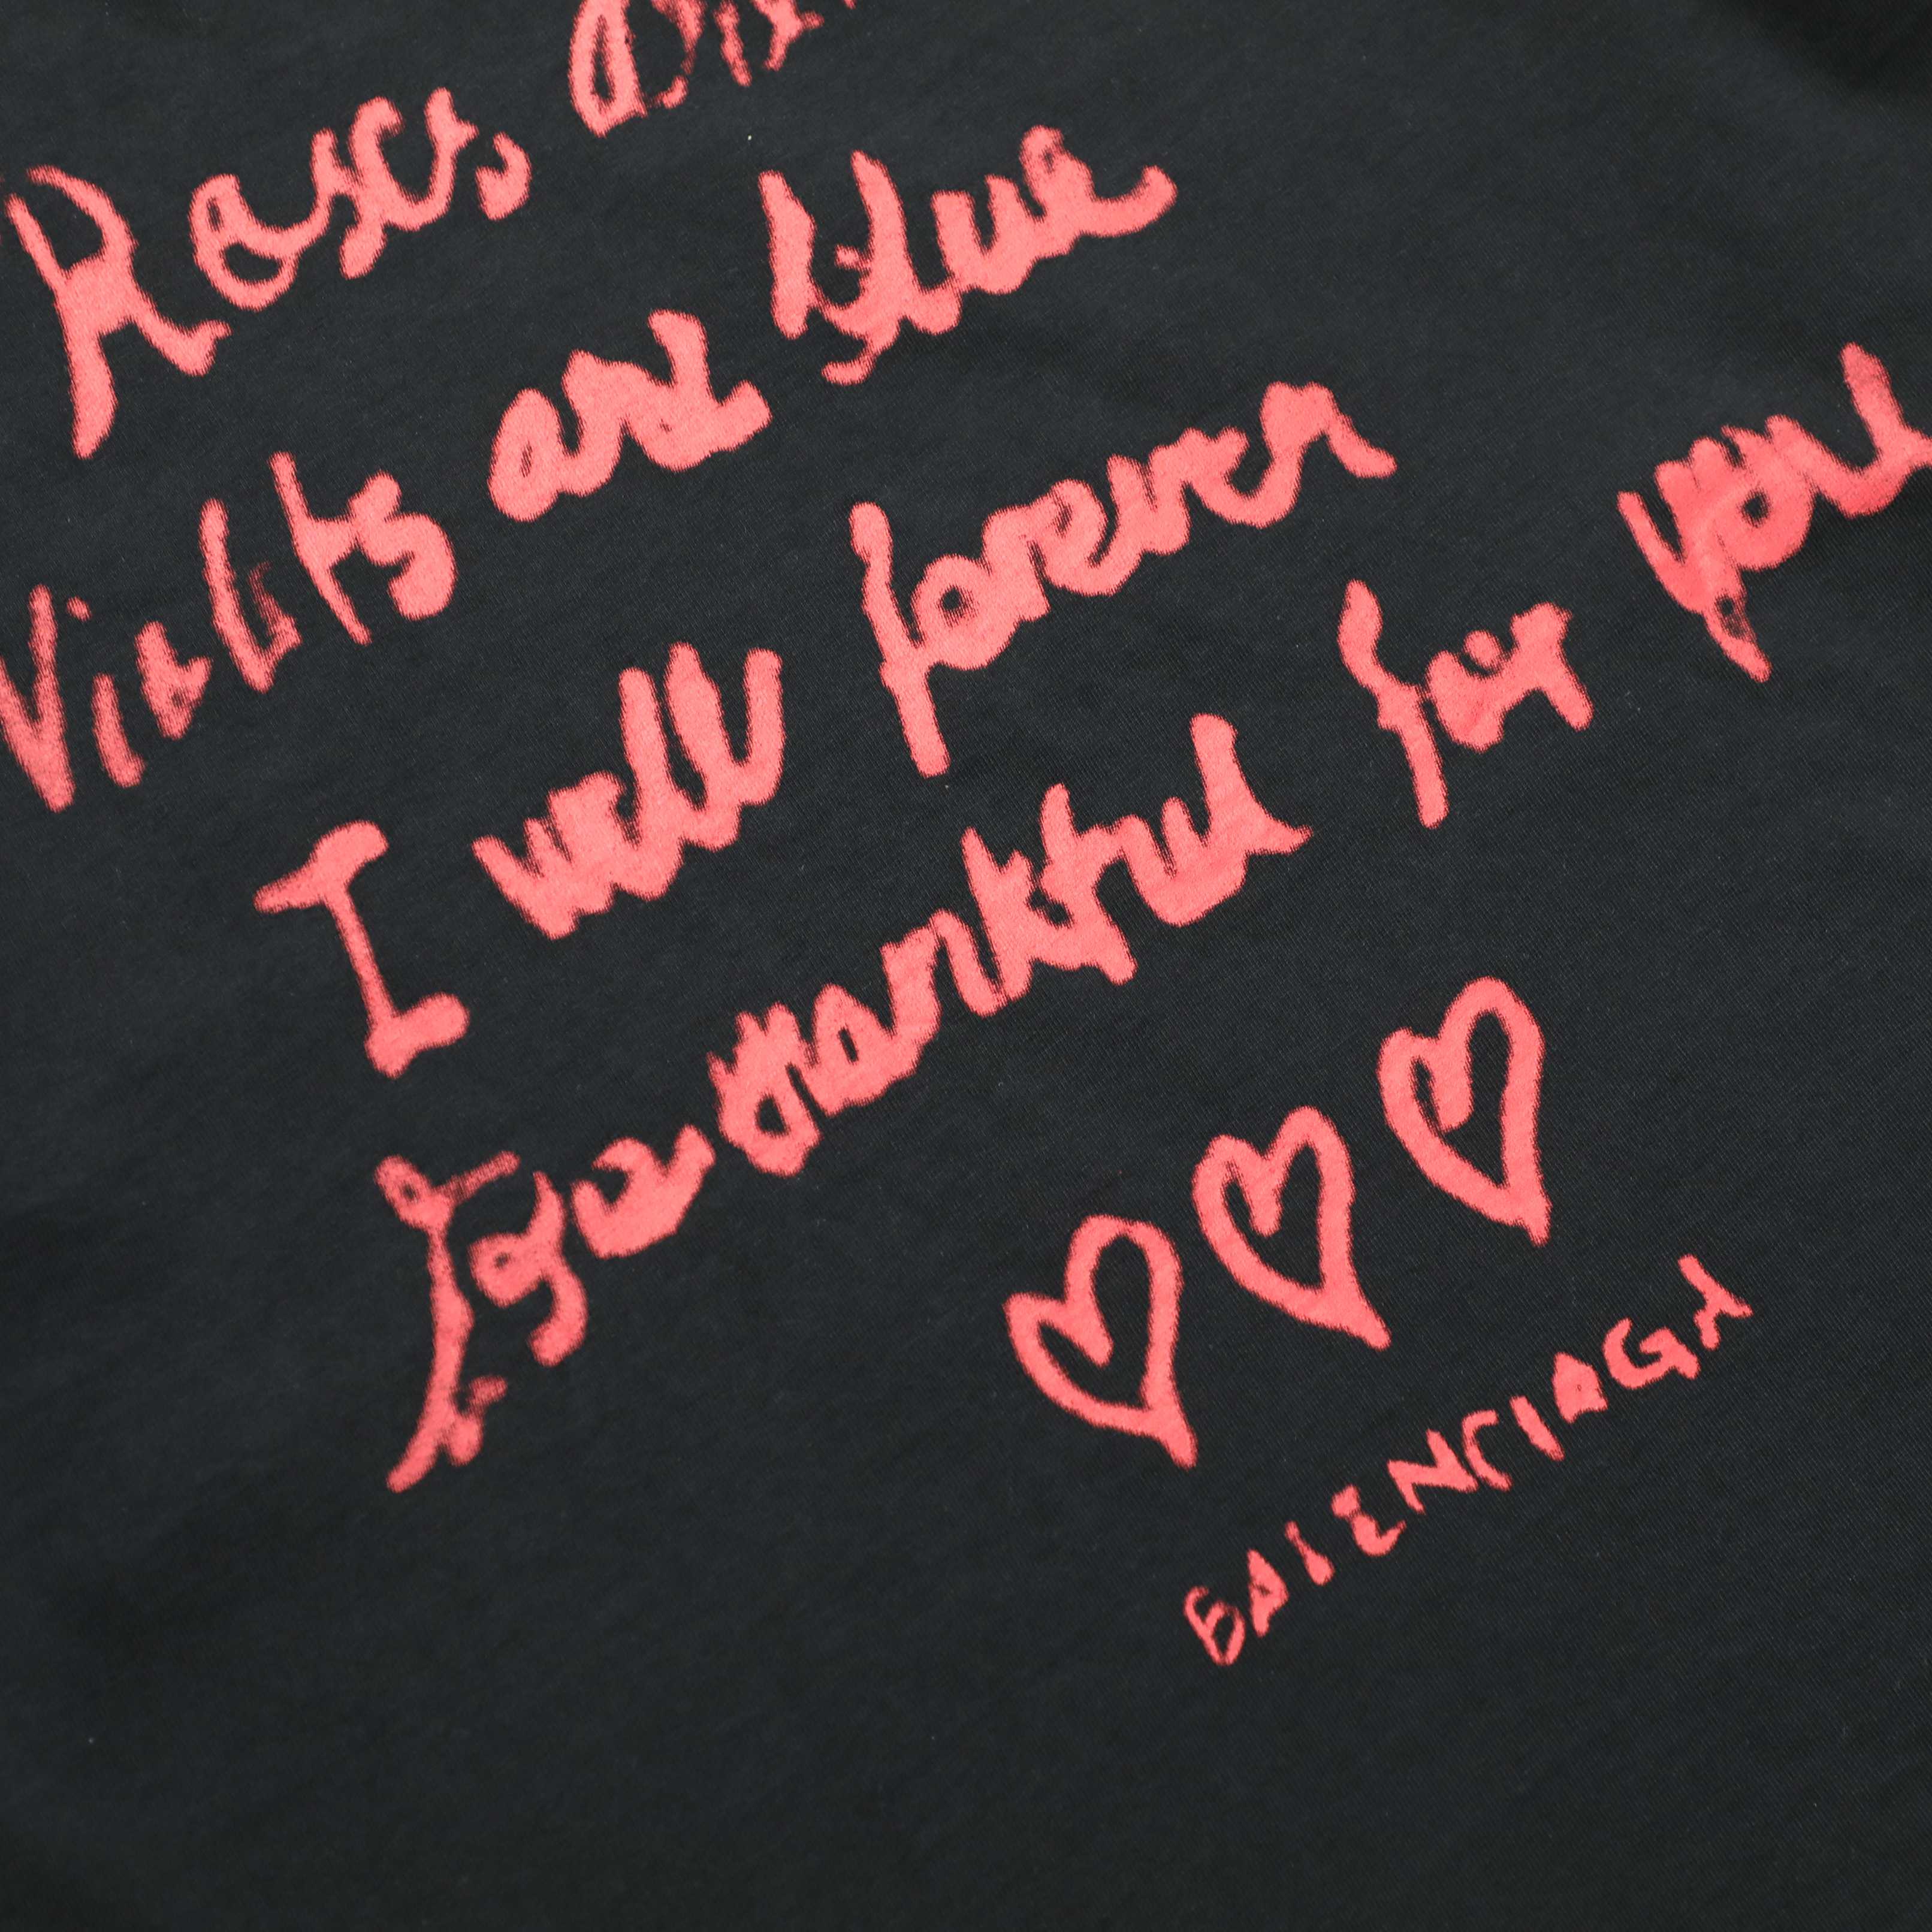 Roses are
Violets are blue
I will forever
be thankful for you
BALENCIAGA